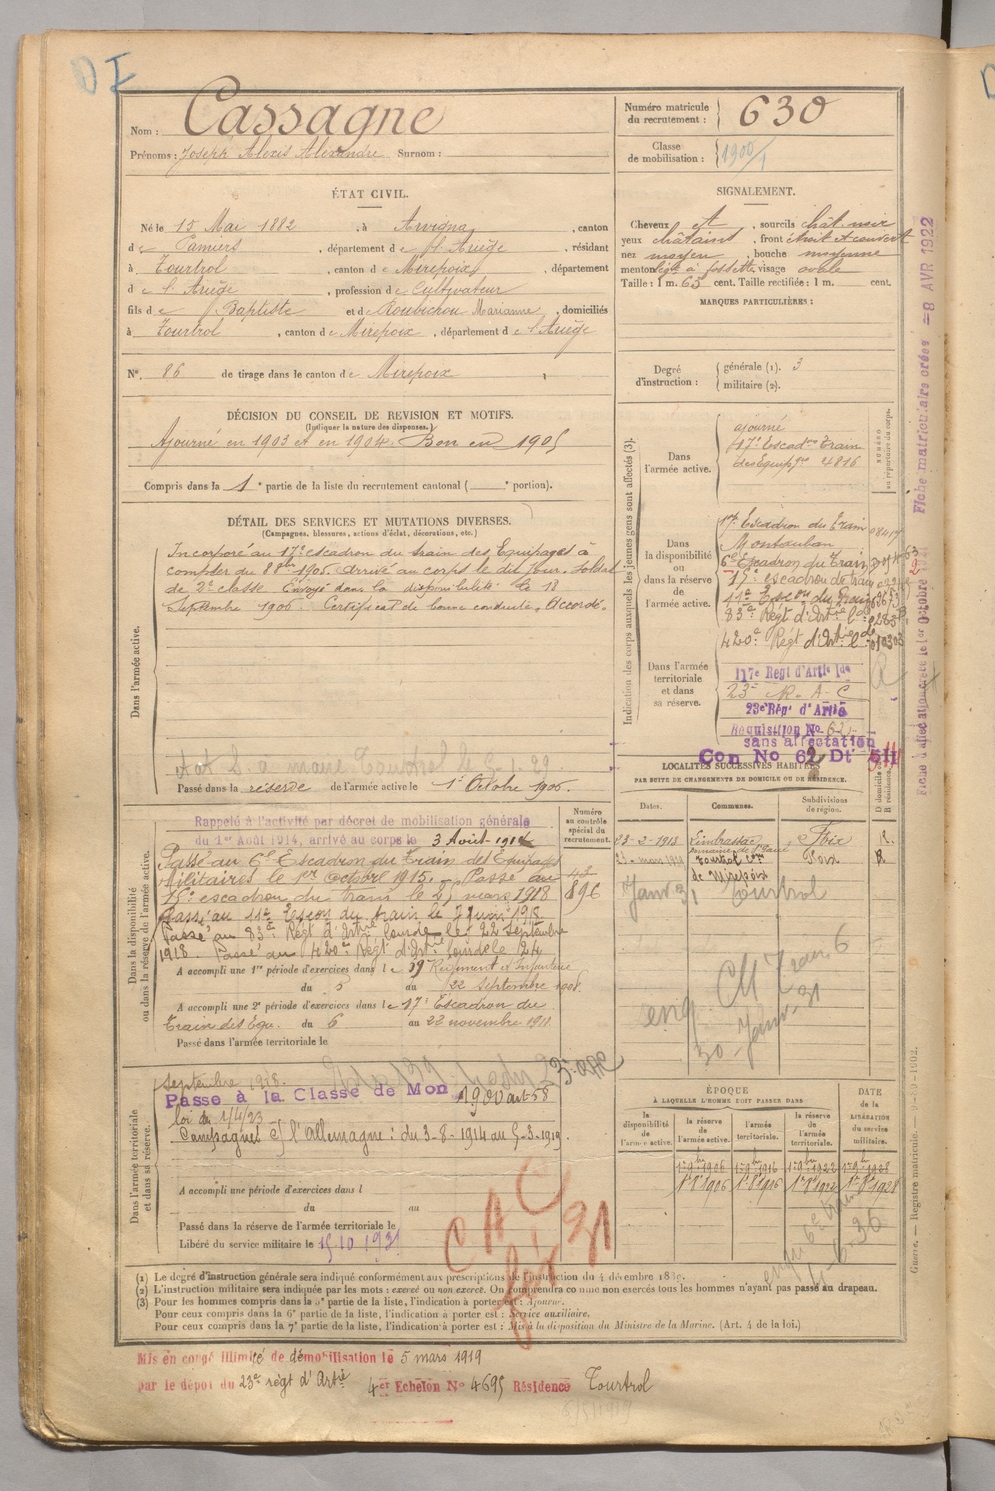 Nom : Cassagne
Prénoms : Joseph Alexis Alexandre Surnom :
Numéro matricule du recrutement : 630
Classe de mobilisation : 1900/1
ÉTAT CIVIL.
Né le 15 Mai 1882, à Arvigna, canton
de Pamiers, département de l'Ariège, résidant
à Tourtrol, canton de Mirepoix, département
de l'Ariège, profession de Cultivateur
fils de Baptiste et de Roubichou Marianne, domiciliés
à Tourtrol, canton de Mirepoix, département de l'Ariège
N° 86 de tirage dans le canton de Mirepoix
SIGNALEMENT.
Cheveux et, sourcils chât. noir
yeux châtains, front étroit et couvert
nez moyen, bouche moyenne
menton à fossette, visage ovale
Taille : 1 m. 63 cent. Taille rectifiée : 1 m. cent.
MARQUES PARTICULIÈRES :
Degré d'instruction : générale (1). 3
militaire (2).
DÉCISION DU CONSEIL DE REVISION ET MOTIFS.
(Indiquer la nature des dispenses.)
Ajourné en 1903 et en 1904. Bon en 1905
Compris dans la 1e partie de la liste du recrutement cantonal ( e portion).
DÉTAIL DES SERVICES ET MUTATIONS DIVERSES.
(Campagnes, blessures, actions d'éclat, décorations, etc.)
Dans l'armée active.
Incorporé au 17e escadron du train des Equipages à
compter du 8 8bre 1905. Arrivé au corps le dit jour. Soldat
de 2e classe Envoyé dans la disponibilité le 18
Septembre 1906. Certificat de bonne conduite "Accordé"
Passé dans la réserve de l'armée active le 1er Octobre 1906.
Indication des corps auxquels les jeunes gens sont affectés (3).
Dans l'armée active.
ajourné
17e Escadron Train
des Equip. 4816
Dans la disponibilité ou dans la réserve de l'armée active.
17e Escadron du Train
Montauban
6e Escadron du Train
15e escadron de train
11e Escon du Train
83e Régt d'Artrie lde
420e Régt d'Artrie lde
Dans l'armée territoriale et dans sa réserve.
117e Régt d'Artie lde
23e R. A. C
23e Rég' d'Artie
Réquisition No 62
sans affectation
Con No 62 Dt 5II
LOCALITÉS SUCCESSIVES HABITÉES
PAR SUITE DE CHANGEMENTS DE DOMICILE OU DE RÉSIDENCE.
Dates. Communes. Subdivisions de région.
23-2-1913 Limbrassac Foix R.
Tourtrol con de Mirepoix Foix R.
Janv. 31 Tourtrol
Fiche matriculaire créée = 8 AVR 1922
Dans la disponibilité ou dans la réserve de l'armée active.
Numéro au contrôle spécial du recrutement.
896
Rappelé à l'activité par décret de mobilisation générale
du 1er Août 1914, arrivé au corps le 3 Août 1914
Passé au 6e Escadron du Train des Equipages
Militaires le 1er octobre 1915. Passé au
15e escadron du train le 21 mars 1918
Passé au 11e Escon du train le 7 juin 1918
Passé au 83e Régt d'Artrie lourde le 22 septembre
1918. Passé au 420e Régt d'Artrie lourde le 24
A accompli une 1re période d'exercices dans le 59e Régiment d'Infanterie
du au 22 septembre 1908.
A accompli une 2e période d'exercices dans le 17e Escadron du
Train des Equ. du 6 au 22 novembre 1911
Passé dans l'armée territoriale le
Dans l'armée territoriale et dans sa réserve.
septembre 1918.
Passé à la Classe de Mon 1900 art 58
loi du 1/4/23
Campagnes ct l'Allemagne : du 3-8-1914 au 5-3-1919.
A accompli une période d'exercices dans l
du au
Passé dans la réserve de l'armée territoriale le
Libéré du service militaire le 15 10 1931
ÉPOQUE
À LAQUELLE L'HOMME DOIT PASSER DANS
la disponibilité de l'armée active. la réserve de l'armée active. l'armée territoriale. la réserve de l'armée territoriale. DATE de la LIBÉRATION du service militaire.
1er 8bre 1906 1er 8bre 1916
(1) Le degré d'instruction générale sera indiqué conformément aux prescriptions de l'instruction du 4 décembre 1889.
(2) L'instruction militaire sera indiquée par les mots : exercé ou non exercé. On comprendra comme non exercés tous les hommes n'ayant pas passé au drapeau.
(3) Pour les hommes compris dans la 5e partie de la liste, l'indication à porter est : Ajourné.
Pour ceux compris dans la 6e partie de la liste, l'indication à porter est : Service auxiliaire.
Pour ceux compris dans la 7e partie de la liste, l'indication à porter est : Mis à la disposition du Ministre de la Marine. (Art. 4 de la loi.)
CAC
31
Guerre. — Registre matricule. — 9-29-1902.
Mis en congé illimité de démobilisation le 5 mars 1919
par le dépôt du 23e régt d'Artie 4er Echelon No 4695 Résidence Tourtrol